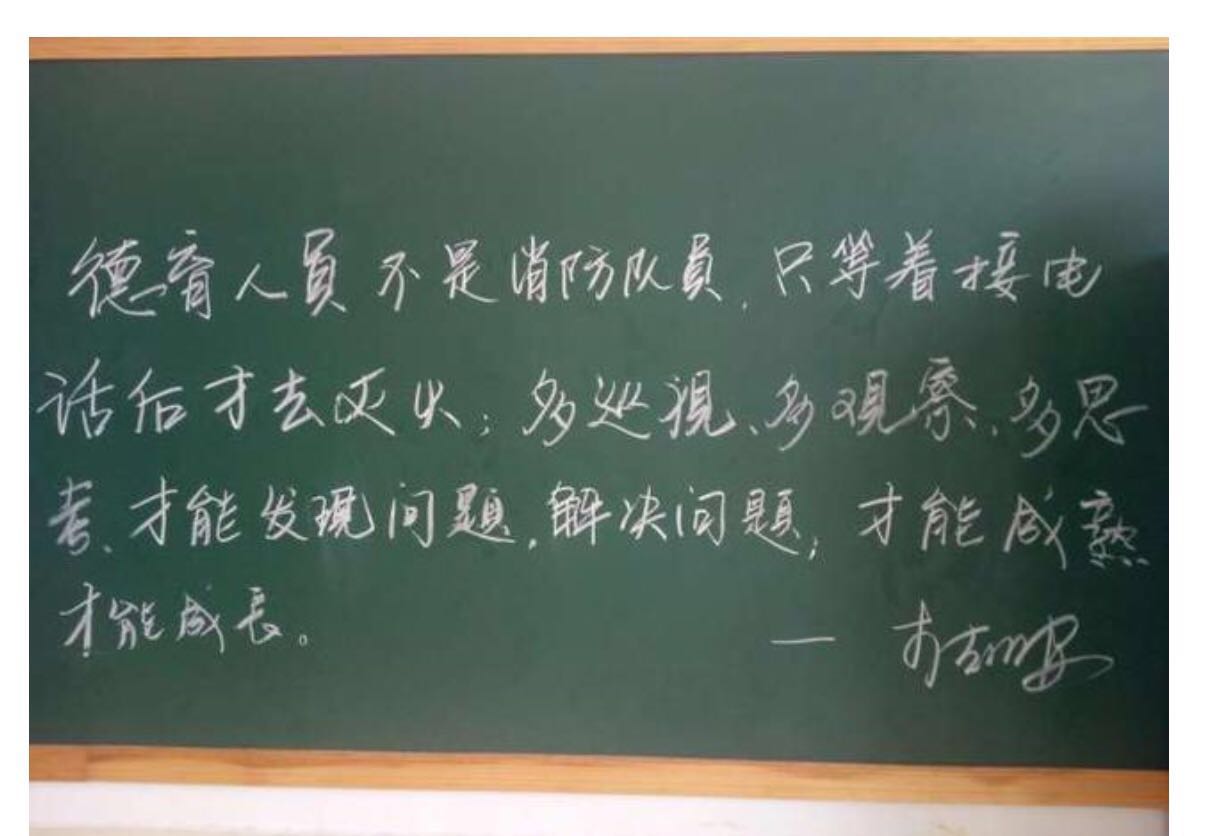 德育人員不是消防队員,只等着接电
话后才去灭火;多巡視、多观察、多思
考、才能发現问題,解决问題;才能成熟
才能成長。